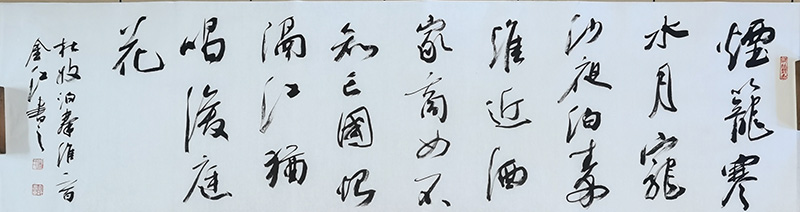 煙籠寒
水月籠
沙夜泊秦
淮近酒
家商女不
知亡國恨
隔江猶
唱後庭
花
杜牧泊秦淮一首
金江書之